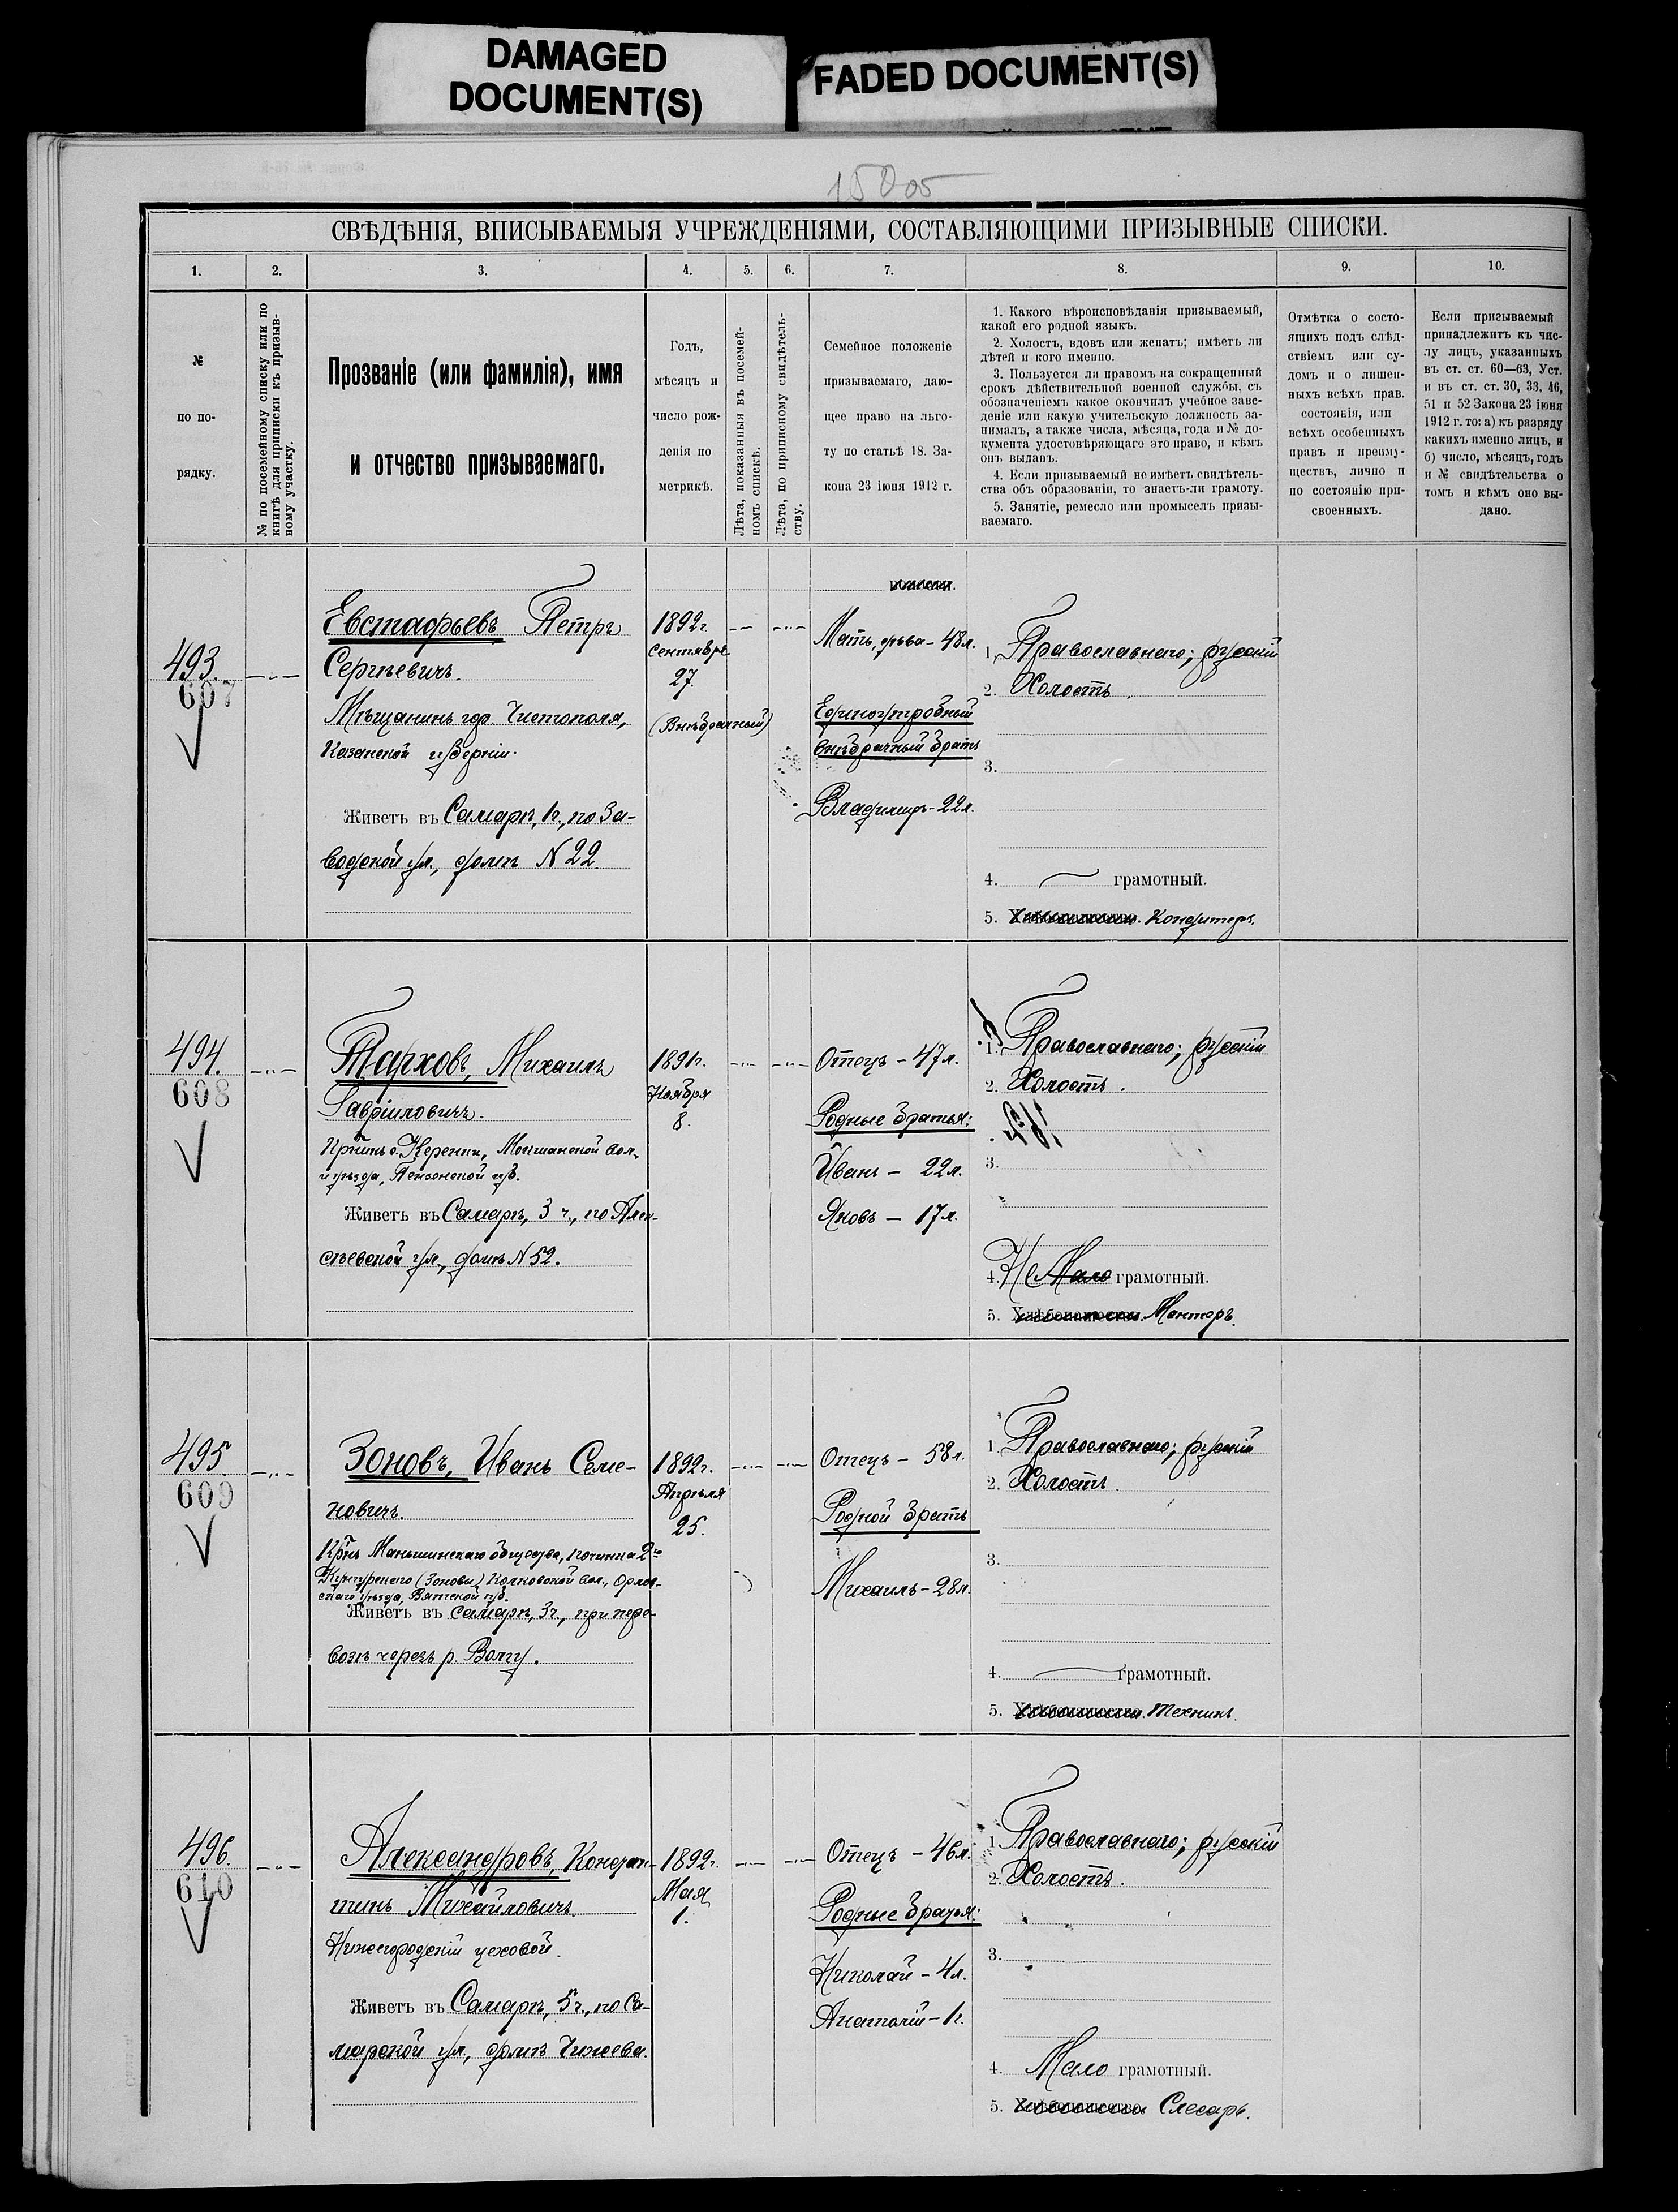 DAMAGED
DOCUMENT(S)
FADED DOCUMENT(S)
СВѢДѢНІЯ, ВПИСЫВАЕМЫЯ УЧРЕЖДЕНІЯМИ, СОСТАВЛЯЮЩИМИ ПРИЗЫВНЫЕ СПИСКИ.
1. 2. 3. 4. 5. 6. 7. 8. 9. 10.
№
по по-
рядку.
№ по посемейному списку или по
книгѣ для приписки къ призыв-
ному участку.
Прозваніе (или фамилія), имя
и отчество призываемаго.
Годъ,
мѣсяцъ и
число рож-
денія по
метрикѣ.
Лѣта, показанныя въ посемей-
номъ спискѣ.
Лѣта, по приписному свидѣтель-
ству.
Семейное положеніе
призываемаго, даю-
щее право на льго-
ту по статьѣ 18. За-
кона 23 іюня 1912 г.
1. Какого вѣроисповѣданія призываемый,
какой его родной языкъ.
2. Холостъ, вдовъ или женатъ; имѣетъ ли
дѣтей и кого именно.
3. Пользуется ли правомъ на сокращенный
срокъ дѣйствительной военной службы, съ
обозначеніемъ какое окончилъ учебное заве-
деніе или какую учительскую должность за-
нималъ, а также числа, мѣсяца, года и № до-
кумента удостовѣряющаго это право, и кѣмъ
онъ выданъ.
4. Если призываемый не имѣетъ свидѣтель-
ства объ образованіи, то знаетъ-ли грамоту.
5. Занятіе, ремесло или промыселъ призы-
ваемаго.
Отмѣтка о состо-
ящихъ подъ слѣд-
ствіемъ или су-
домъ и о лишен-
ныхъ всѣхъ прав.
состоянія, или
всѣхъ особенныхъ
правъ и преиму-
ществъ, лично и
по состоянію при-
своенныхъ.
Если призываемый
принадлежитъ къ чис-
лу лицъ, указанныхъ
въ ст. ст. 60—63, Уст.
и въ ст. ст. 30, 33, 46,
51 и 52 Закона 23 іюня
1912 г. то: а) къ разряду
какихъ именно лицъ, и
б) число, мѣсяцъ, годъ
и № свидѣтельства о
томъ и кѣмъ оно вы-
дано.
493.
607
Евстафьевъ Петръ
Сергѣевичъ.
Мѣщанинъ гор. Чистополя,
Казанской губерніи.
Живетъ въ Самарѣ, 1ч., по За-
водской ул., домъ N 22.
1892г.
Сентября
27.
(Внѣбрачный)
Мать, дѣва - 48л.
Единоутробный
внѣбрачный братъ
Владимиръ - 22л.
1. Православнаго; русскій
2. Холостъ.
3.
4. грамотный.
5. Кондитеръ.
494.
608
Тарховъ, Михаилъ
Гавріиловичъ.
Кр-нинъ с. Керенки, Мокшанской вол.
и уѣзда, Пензенской губ.
Живетъ въ Самарѣ, 3 ч., по Алек-
сѣевской ул., домъ N 52.
1891г.
Ноября
8.
Отецъ - 47л.
Родные братья:
Иванъ - 22л.
Яковъ - 17л.
1. Православнаго; русскій
2. Холостъ.
3.
4. Не Мало грамотный.
5. Монтеръ.
495.
609
Зоновъ, Иванъ Семе-
новичъ.
Живетъ въ Самарѣ, 3ч., при пере-
возѣ черезъ р. Волгу.
1892г.
Апрѣля
25.
Отецъ - 58л.
Родной братъ
Михаилъ - 28л.
1. Православнаго; русскій
2. Холостъ.
3.
4. грамотный.
5. Техникъ.
496.
610
Александровъ, Констан-
тинъ Михайловичъ.
Нижегородскій цеховой.
Живетъ въ Самарѣ, 5ч., по Са-
марской ул., домъ Чижева.
1892г.
Мая
1.
Отецъ - 46л.
Родные братья:
Николай - 4л.
Анатолій - 1г.
1. Православнаго; русскій
2. Холостъ.
3.
4. Мало грамотный.
5. Слесарь.